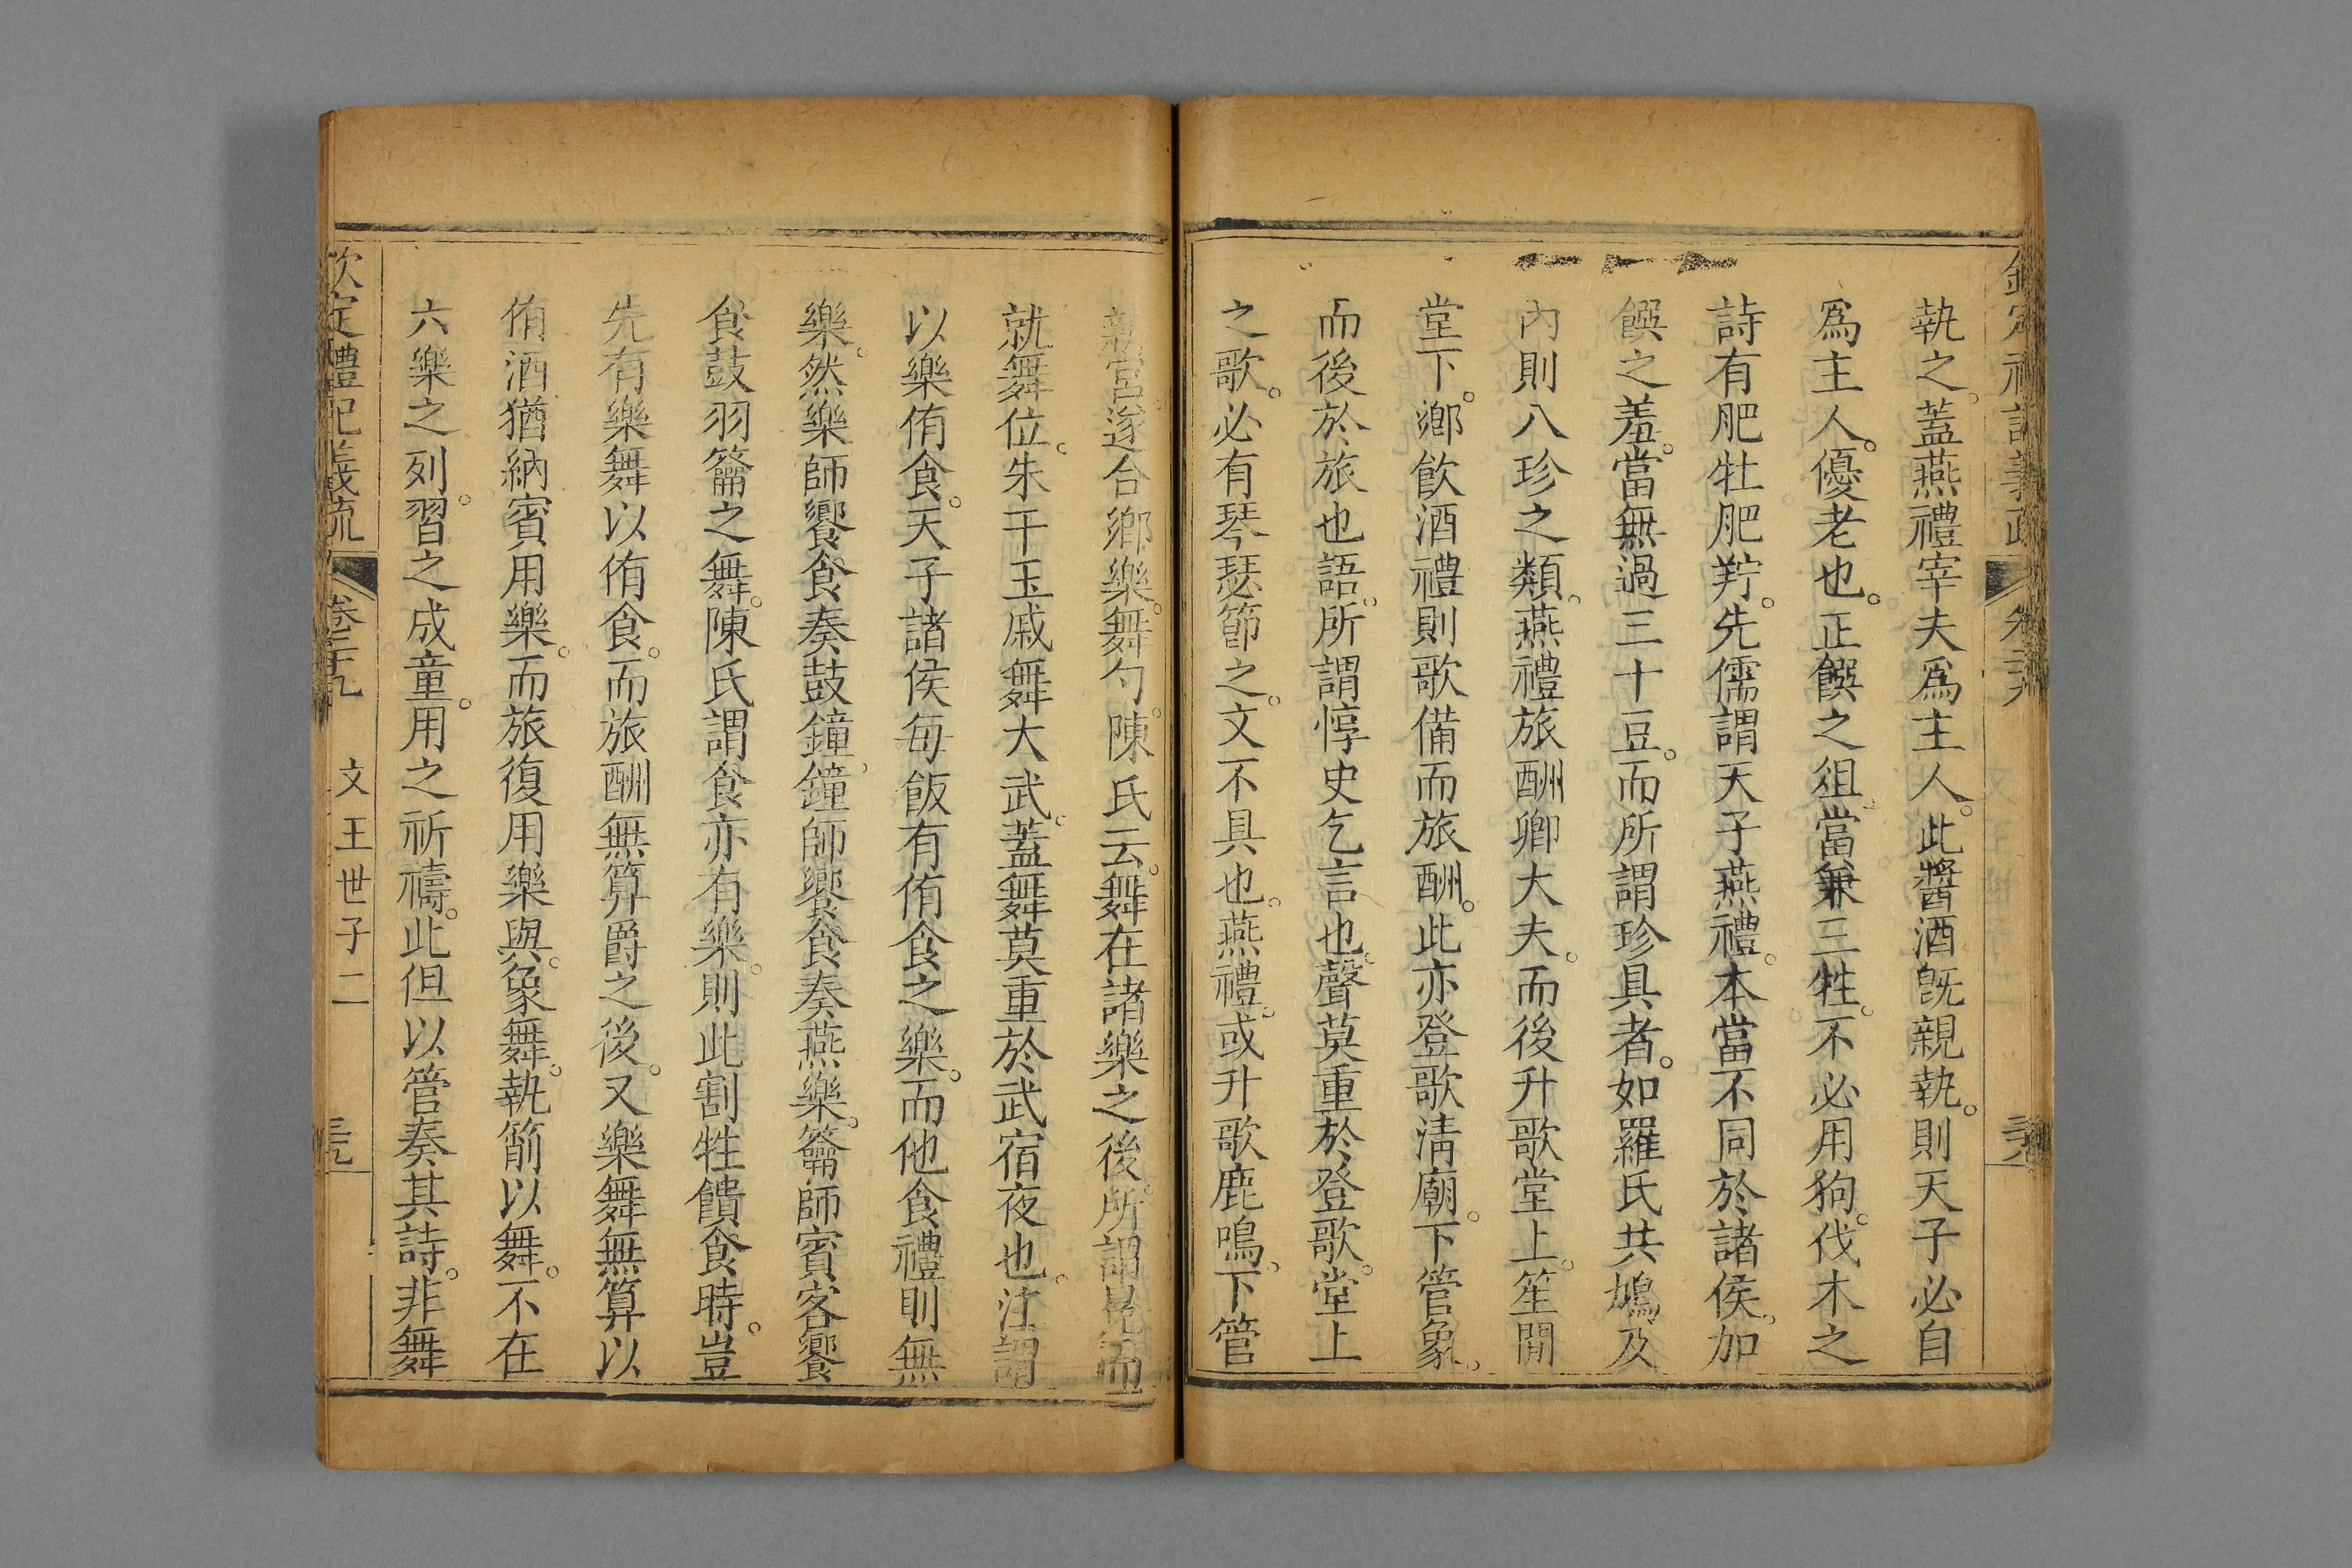 執之。蓋燕禮宰夫爲主人。此醬酒旣親執。則天子必自
爲主人。優老也。正饌之俎。當兼三牲。不必用狗。伐木之
詩有肥牡肥羜。先儒謂天子燕禮。本當不同於諸侯。加
饌之羞。當無過三十豆。而所謂珍具者。如羅氏共鳩。及
內則八珍之類。燕禮旅酬卿大夫。而後升歌堂上。笙閒
堂下。鄉飲酒禮則歌備而旅酬。此亦登歌淸廟。下管象。
而後於旅也語。所謂惇史乞言也。聲莫重於登歌。堂上
之歌。必有琴瑟節之。文不具也。燕禮。或升歌鹿鳴。下管
新宮。遂合鄉樂。舞勺。陳氏云。舞在諸樂之後。所謂
就舞位。朱干玉戚舞大武。蓋舞莫重於武宿夜也。注謂
以樂侑食。天子諸侯每飯有侑食之樂。而他食禮則無
樂。然樂師饗食奏鼓鐘。鐘師饗食奏燕樂。籥師賓客饗
食鼓羽籥之舞。陳氏謂食亦有樂。則此割牲饋食時。豈
先有樂舞以侑食。而旅酬無算爵之後。又樂舞無算以
侑酒。猶納賓用樂。而旅復用樂與。象舞。執箾以舞。不在
六樂之列。習之成童。用之祈禱。此但以管奏其詩。非舞
欽定禮記義疏 卷二十九 文王世子二 三九